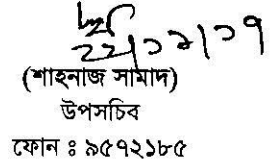 ২২/১২/১৭
(শাহনাজ সামাদ)
উপসচিব
ফোন ঃ ৯৫৭২১৮৫